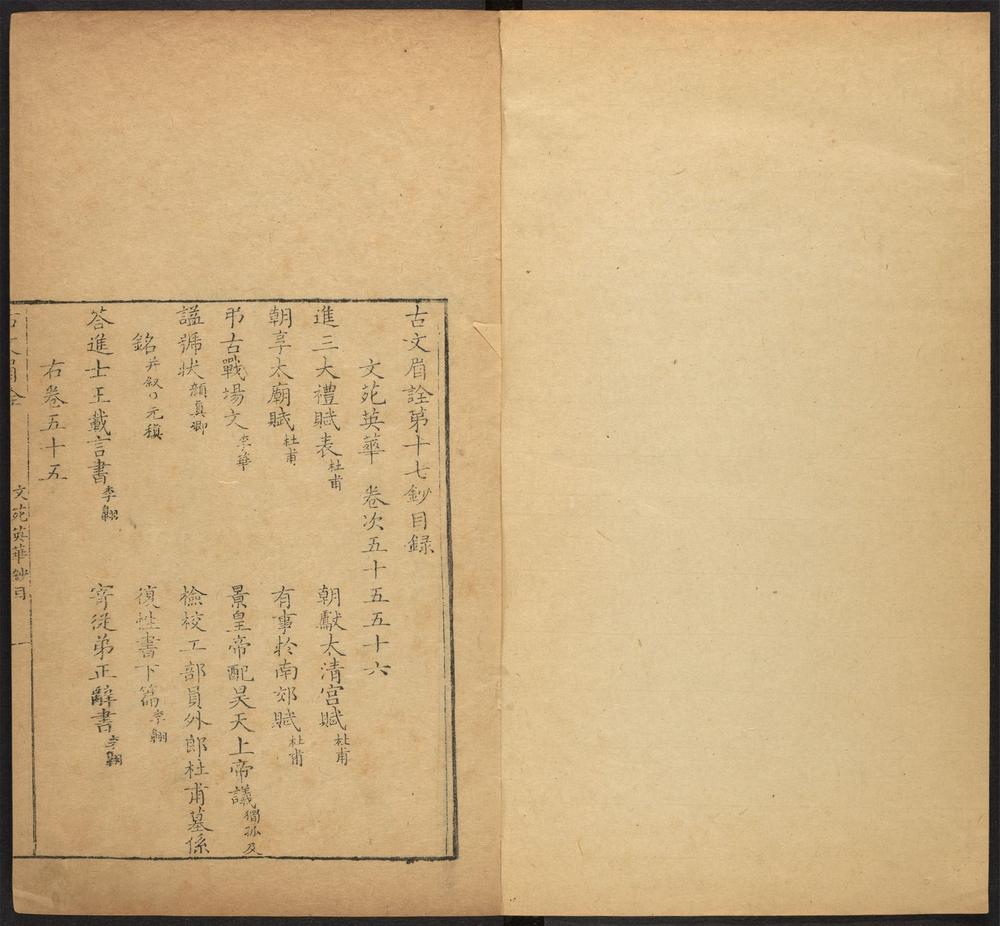 古文眉詮第十七鈔目録
文苑英華　卷次五十五五十六
進三大禮賦表杜甫　朝獻太清宫賦杜甫
朝享太廟賦杜甫　有事於南郊賦杜甫
弔古戰場文李華　景皇帝配昊天上帝議獨孤及
諡號狀顏真卿　檢校工部員外郎杜甫墓係
銘并叙〇元稹　復性書下篇李翺
答進士王載言書李翺　寄從弟正辭書李翺
右卷五十五
文苑英華鈔目　一